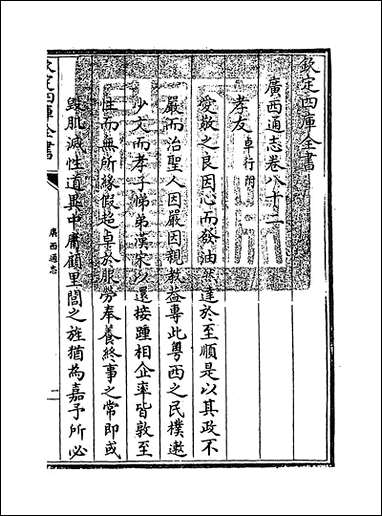 欽定四庫全書
廣西通志卷八十二
孝友 卓行附
愛敬之良因心而發油然達於至順是以其政不
嚴而治聖人因嚴因親教益專此粤西之民樸遫
少文而孝子悌弟漢宋以還接踵相企率皆敦至
性而無所緣假超卓於服勞奉養終事之常即或
毀肌滅性道與中庸顧里閭之旌猶為嘉予所必
欽定四庫全書
廣西通志
一